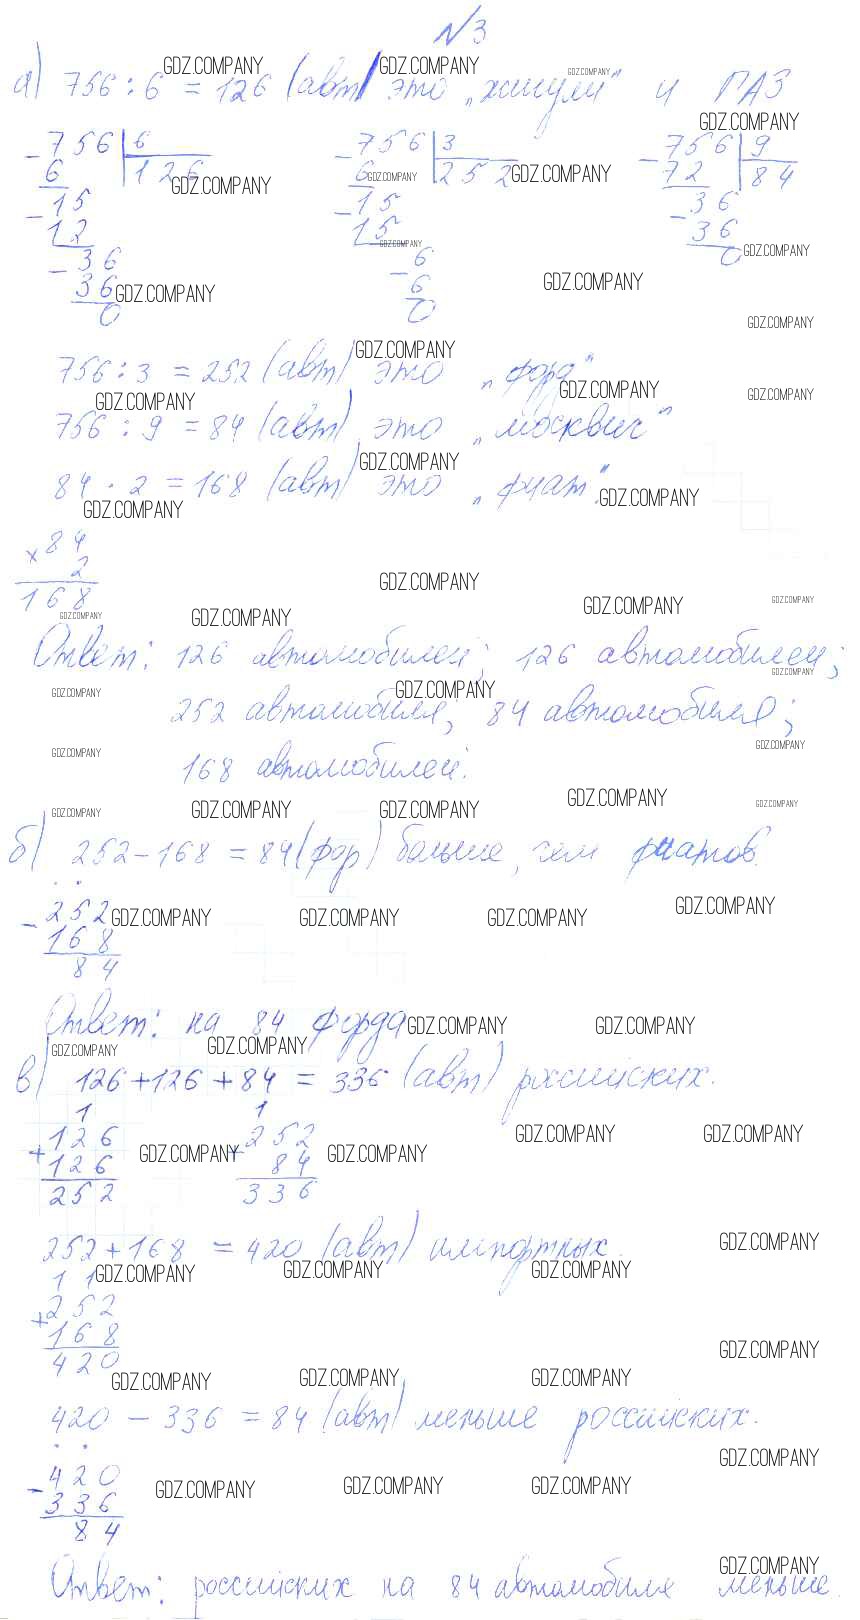 №3
а) 756 : 6 = 126 (авт) это „жигули" и ГАЗ
- 756 | 6
6 | 126
- 15
12
- 36
36
0
- 756 | 3
6 | 252
- 15
15
- 6
6
0
- 756 | 9
72 | 84
- 36
36
0
756 : 3 = 252 (авт) это „форд"
756 : 9 = 84 (авт) это „москвич"
84 · 2 = 168 (авт) это „фиат".
× 84
2
168
Ответ: 126 автомобилей; 126 автомобилей;
252 автомобиля; 84 автомобиля;
168 автомобилей.
б) 252 - 168 = 84 (фор) больше, чем фиатов.
- 252
168
84
Ответ: на 84 форда
в) 126 + 126 + 84 = 336 (авт) российских.
1
+ 126
126
252
1
+ 252
84
336
252 + 168 = 420 (авт) импортных.
1 1
+ 252
168
420
420 - 336 = 84 (авт) меньше российских.
- 420
336
84
Ответ: российских на 84 автомобиля меньше.
GDZ.COMPANY